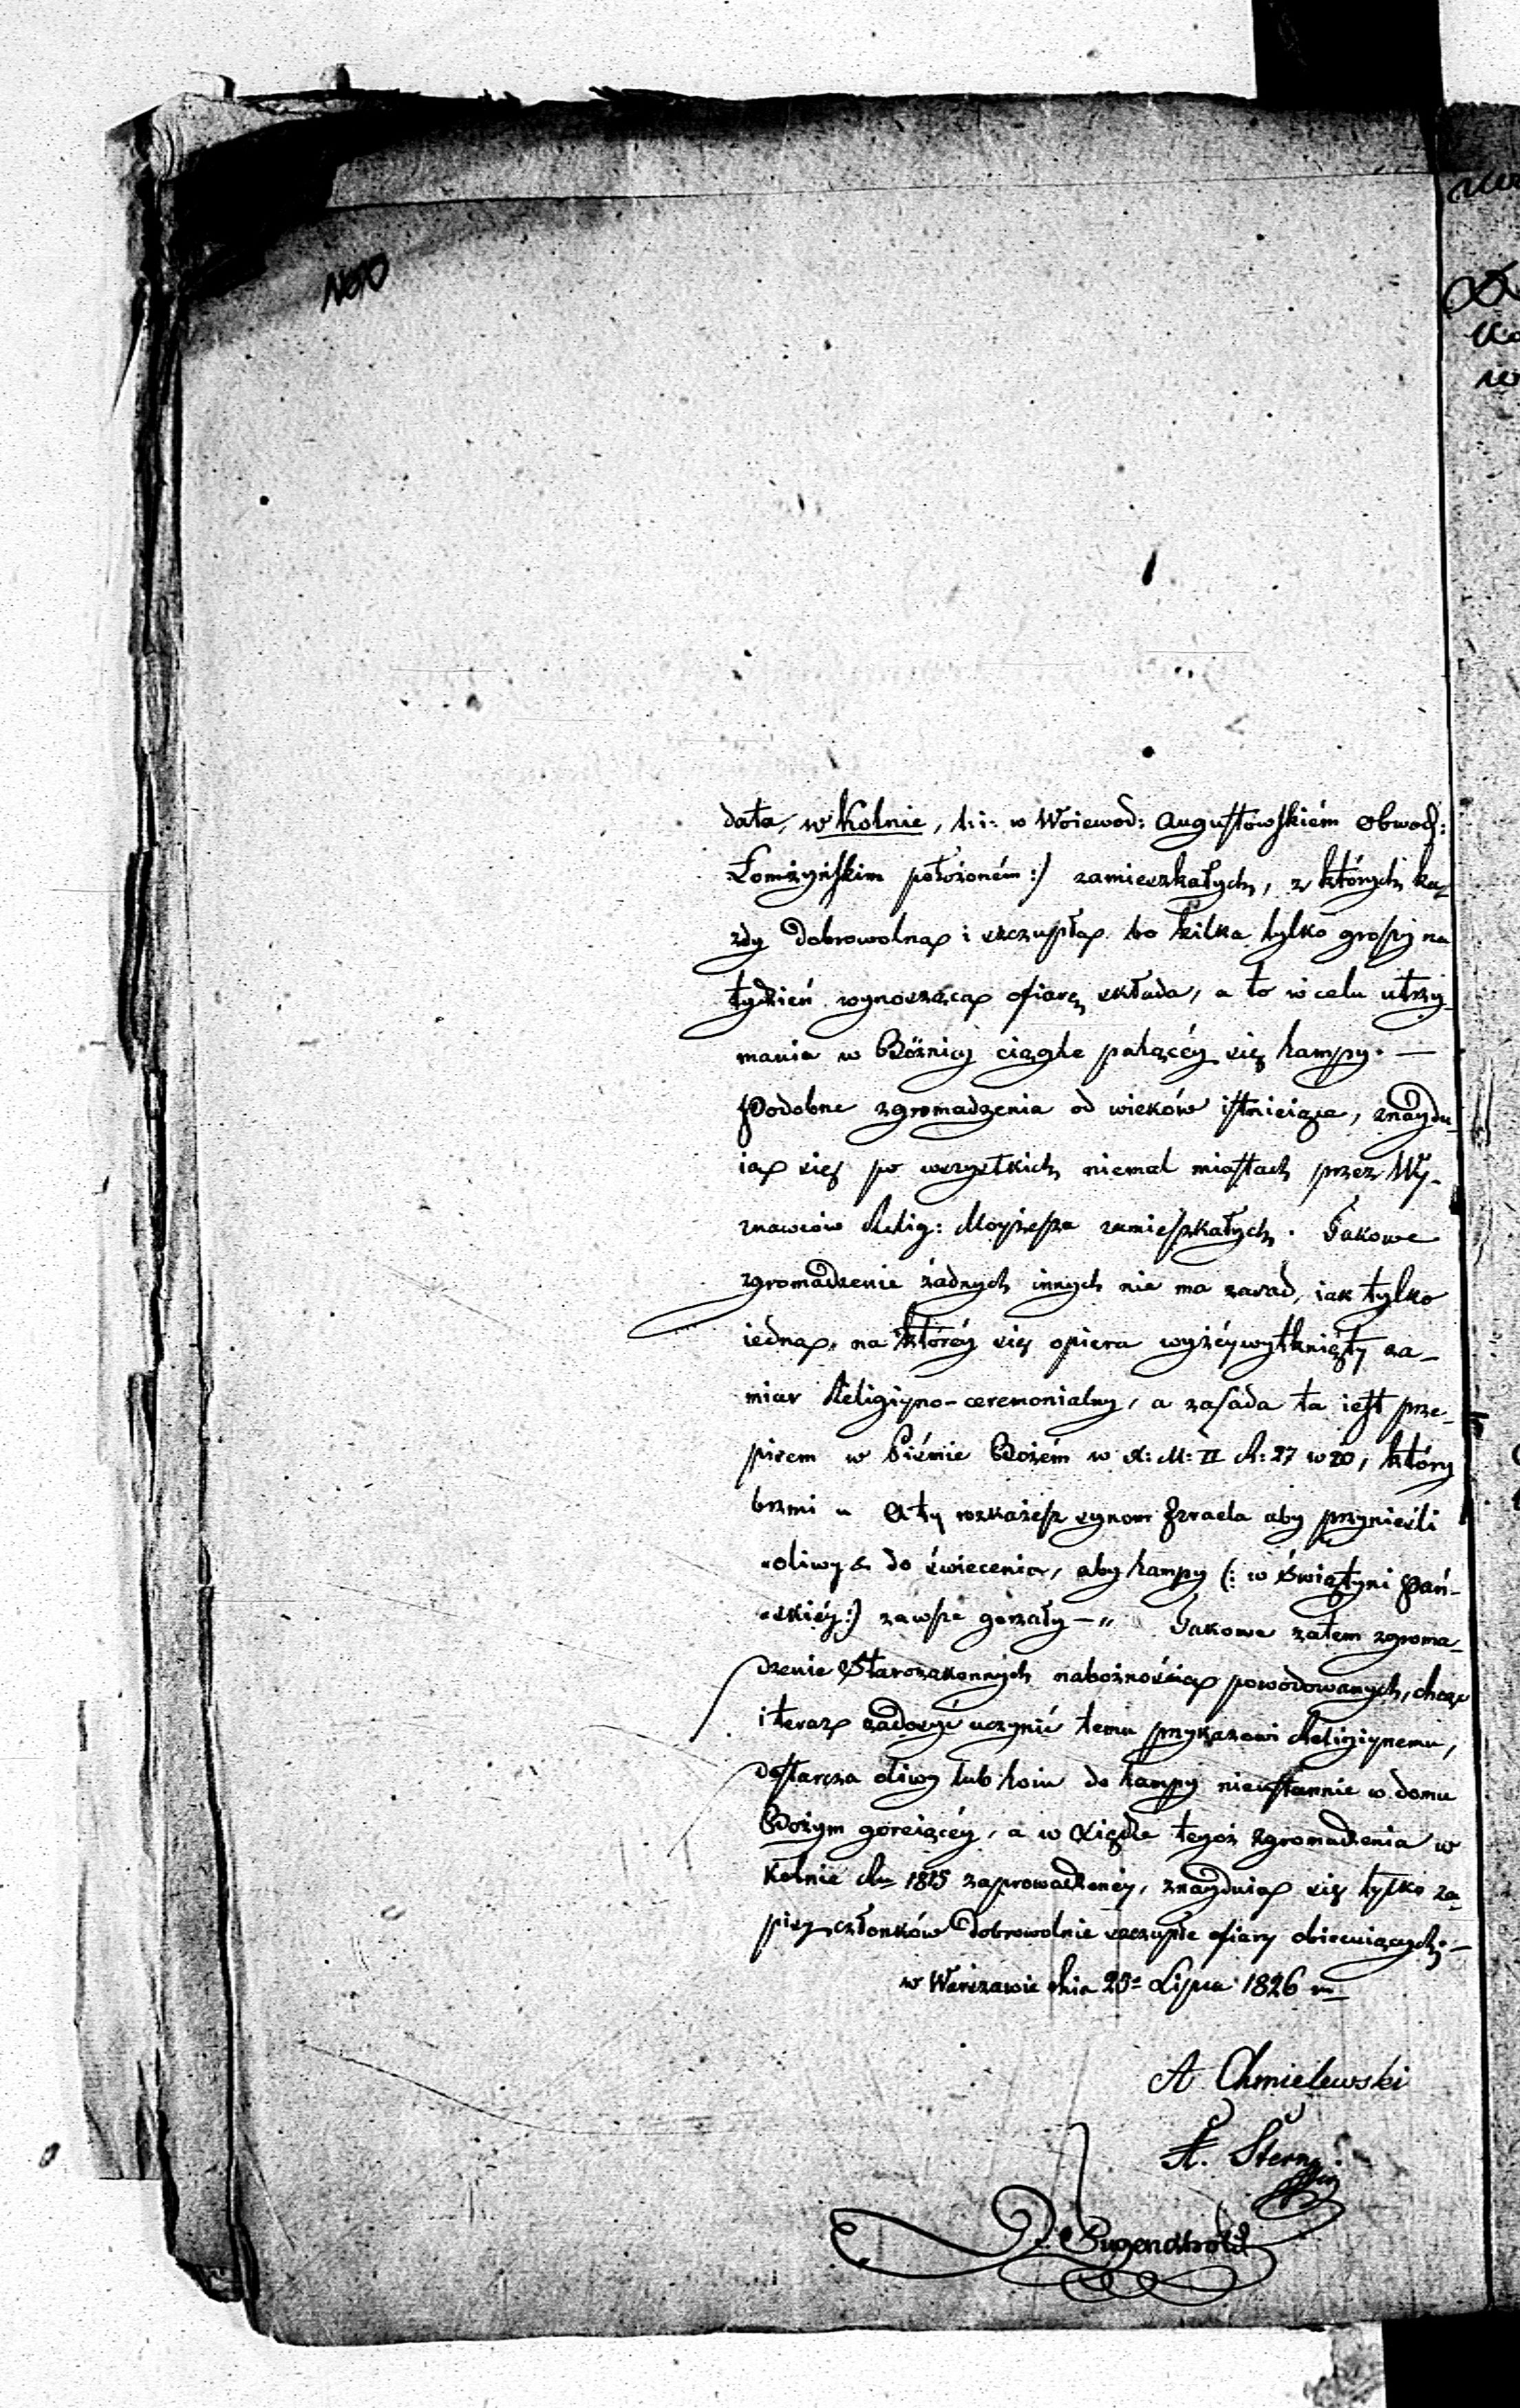 data, w Kolnie, /:i: w Woiewod: Augustowskiém Obwod:
Łomżyńskim położoném:/ zamieszkałych, z których ka-
żdy dobrowolną i szczupłą bo kilka tylko groszy na
tydzień wynoszącą ofiarę składa, a to w celu utrzy-
mania w Bóżnicy ciągle palącéy się lampy. —
Podobne zgromadzenia od wieków istnieiące, znaydu-
ią się po wszystkich niemal miastach przez Wy-
znawców Relig: Moyżesza zamieszkałych. Takowe
zgromadzenie żadnych innych nie ma zasad, iak tylko
iedną, na któréy się opiera wyżéy wytknięty za-
miar Religiyno-ceremonialny, a zasada ta iest prze-
pisem w Piśmie Bożém w X: M: II R: 27 w 20, który
brzmi „ A ty rozkażesz synom Izraela aby przynieśli
„oliwy & do świecenia, aby lampy (: w Świątyni Pań-
„skiéy:) zawsze gorzały —„ Takowe zatem zgroma-
dzenie Starozakonnych nabożnością powodowanych, chcąc
i teraz zadosyć uczynić temu przykazowi Religiynemu,
dostarcza oliwy lub łoiu do lampy nieustannie w domu
Bożym goreiącéy, a w Xiędze tegoż zgromadzenia w
Kolnie 1815 zaprowadzonéy, znayduią się tylko za-
pisy członków dobrowolnie szczupłe ofiary obiecuiących. —
w Warszawie dnia 25º Lipca 1826 r.
A Chmielewski
A. Stern
J. Tugendhold